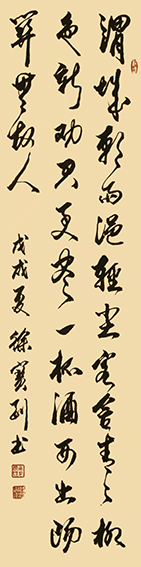 渭城朝雨浥輕尘客舍青々柳
色新劝君更尽一杯酒西出陽
關無故人
戊戌夏徐寶书